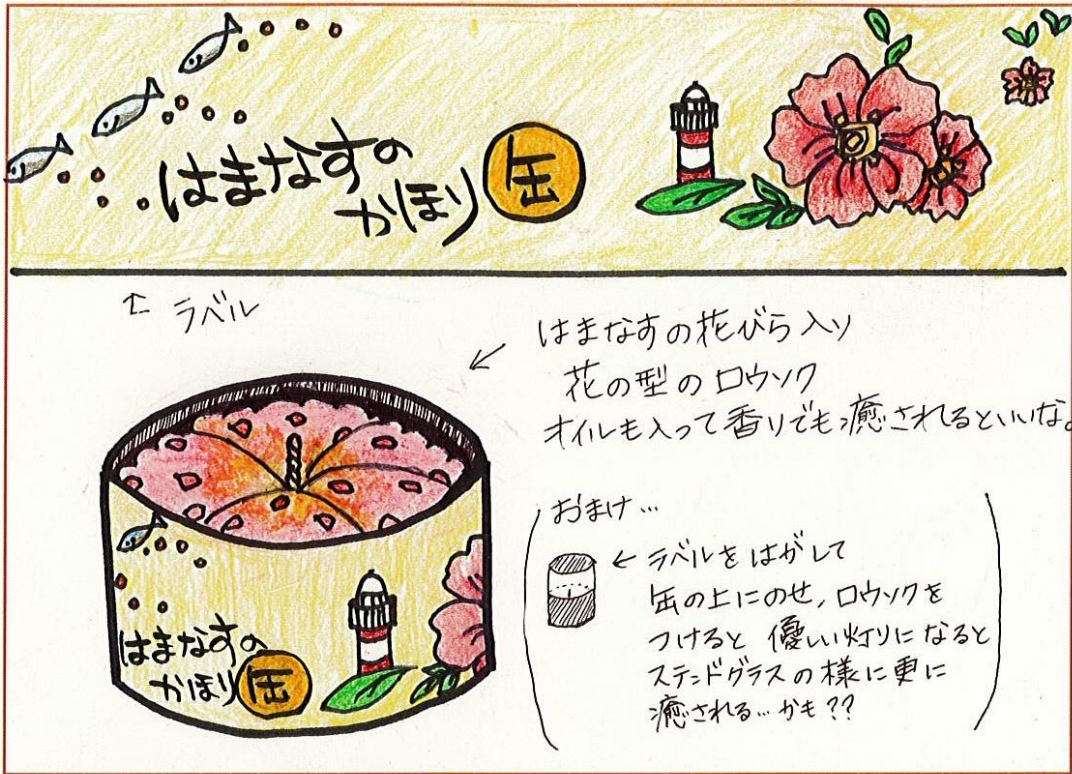 はまなすの
かほり 缶
← ラベル
はまなすの花びら入り
花の型のロウソク
オイルも入って香りでも癒されるといいな。
はまなすの
かほり 缶
おまけ…
← ラベルをはがして
缶の上にのせ、ロウソクを
つけると 優しい灯りになると
ステンドグラスの様に更に
癒される…かも??